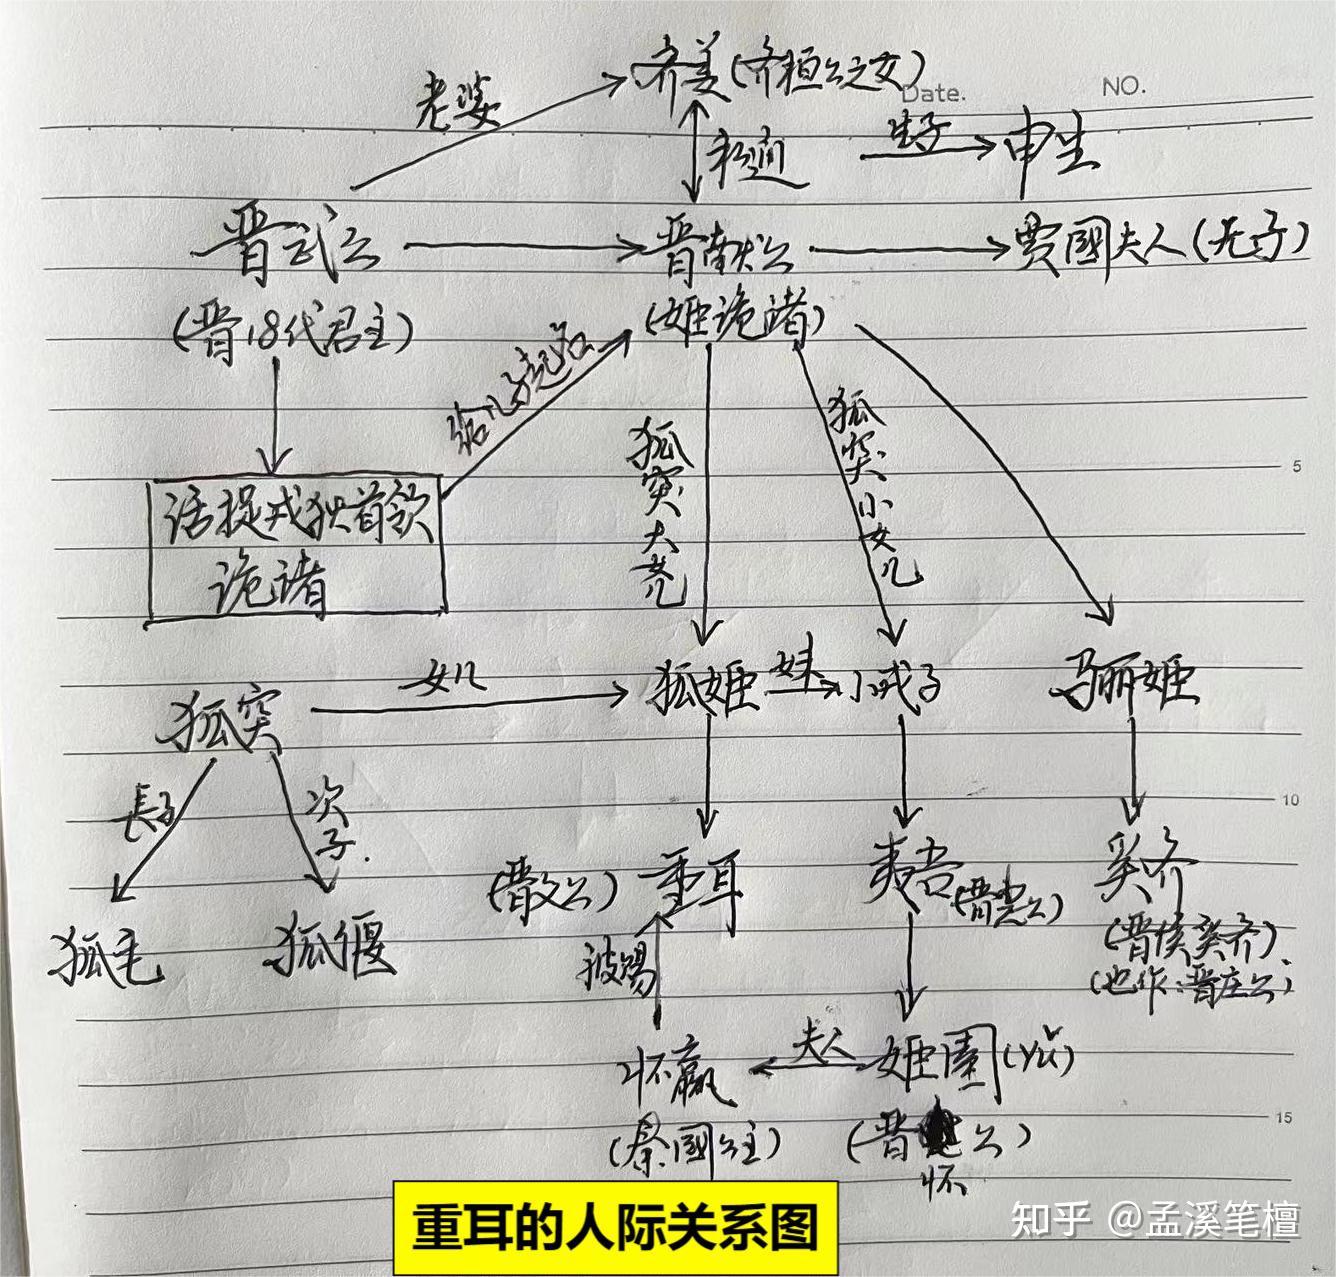 齐姜(齐桓公之女)
Date.
NO.
老婆
私通
生子
申生
晋武公
晋献公
贾國夫人(无子)
(晋18代君主)
(姬诡诸)
给儿子起名
狐突大女儿
狐突小女儿
5
活捉戎狄首领
诡诸
女儿
狐突
狐姬
妹
小戎子
骊姬
長子
次子.
10
(晋文公)
重耳
夷吾
(晋惠公)
奚齐
狐毛
狐偃
被赐
(晋侯奚齐)
(也作:晋庄公)
怀嬴
夫人
姬圉(yǔ)
(秦國公主)
(晋公)
怀
15
重耳的人际关系图
知乎 @孟溪笔檀